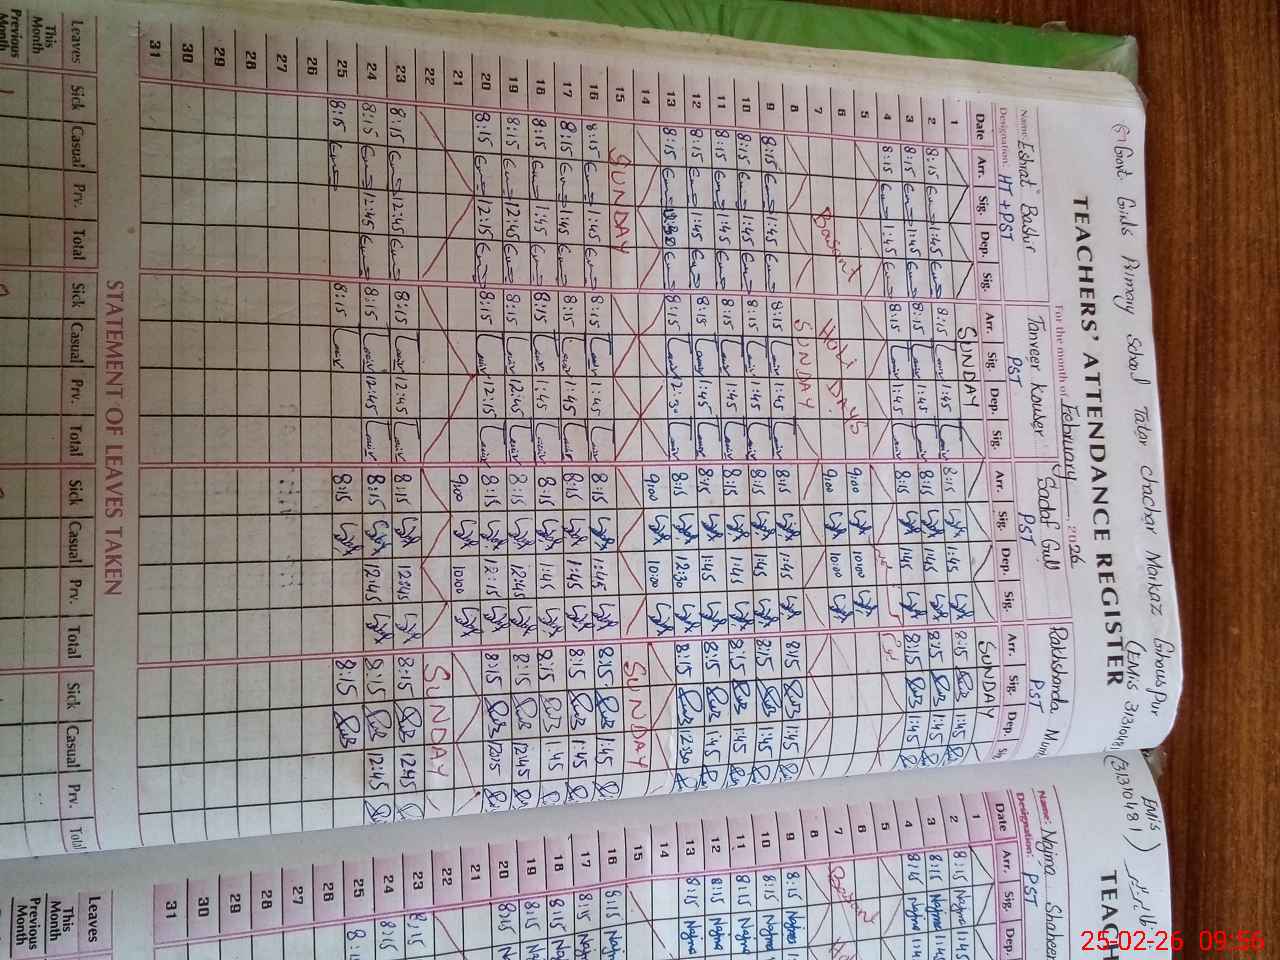 Govt Girls Primary School Tatar Chachar Markaz Ghouspur
(EMIS 31310481)
TEACHERS' ATTENDANCE REGISTER
For the month of February, 2026
Name: Eshrat Bashir
Designation: HT + PST
Tanveer Kouser
PST
Sadaf Gull
PST
Rakhshanda
PST
Date Arr. Sig. Dep. Sig. Arr. Sig. Dep. Sig. Arr. Sig. Dep. Sig. Arr. Sig. Dep.
1 SUNDAY SUNDAY
2 8:15 1:45 8:15 1:45 8:15 1:45 8:15 1:45
3 8:15 1:45 8:15 1:45 8:15 1:45 8:15 1:45
4 8:15 1:45 8:15 1:45 8:15 1:45 8:15 1:45
5
6 Basant Holi Days 9:00 10:00
7 9:00 10:00
8 SUNDAY
9 8:15 1:45 8:15 1:45 8:15 1:45 8:15 1:45
10 8:15 1:45 8:15 1:45 8:15 1:45 8:15 1:45
11 8:15 1:45 8:15 1:45 8:15 1:45 8:15 1:45
12 8:15 1:45 8:15 1:45 8:15 1:45 8:15 1:45
13 8:15 8:15 12:30 8:15 12:30 8:15 12:30
14 9:00 10:00
15 SUNDAY SUNDAY
16 8:15 1:45 8:15 1:45 8:15 1:45 8:15 1:45
17 8:15 1:45 8:15 1:45 8:15 1:45 8:15 1:45
18 8:15 1:45 8:15 1:45 8:15 1:45 8:15 1:45
19 8:15 12:45 8:15 12:45 8:15 12:45 8:15 12:45
20 8:15 12:15 8:15 12:15 8:15 12:15 8:15 12:15
21 9:00 10:00
22 SUNDAY
23 8:15 12:45 8:15 12:45 8:15 12:45 8:15 12:45
24 8:15 12:45 8:15 12:45 8:15 12:45 8:15 12:45
25 8:15 8:15 8:15 8:15
26
27
28
29
30
31
STATEMENT OF LEAVES TAKEN
Leaves Sick Casual Prv. Total Sick Casual Prv. Total Sick Casual Prv. Total Sick Casual Prv. Total
This Month
Previous Month
EMIS
(31310481)
TEACH
Name: Najma Shaheen
Designation: PST
Date Arr. Sig. Dep.
1
2 8:15 Najma 1:45
3 8:15 Najma 1:45
4 8:15 Najma 1:45
5
6
7 Basant
8
9 8:15 Najma
10 8:15 Najma
11 8:15 Najma
12 8:15 Najma
13 8:15 Najma
14
15
16 8:15 Najma
17 8:15 Najma
18 8:15
19 8:15
20 8:15
21
22
23 8:15
24 8:15
25
26
27
28
29
30
31
Leaves
This Month
Previous Month
25-02-26 09:56